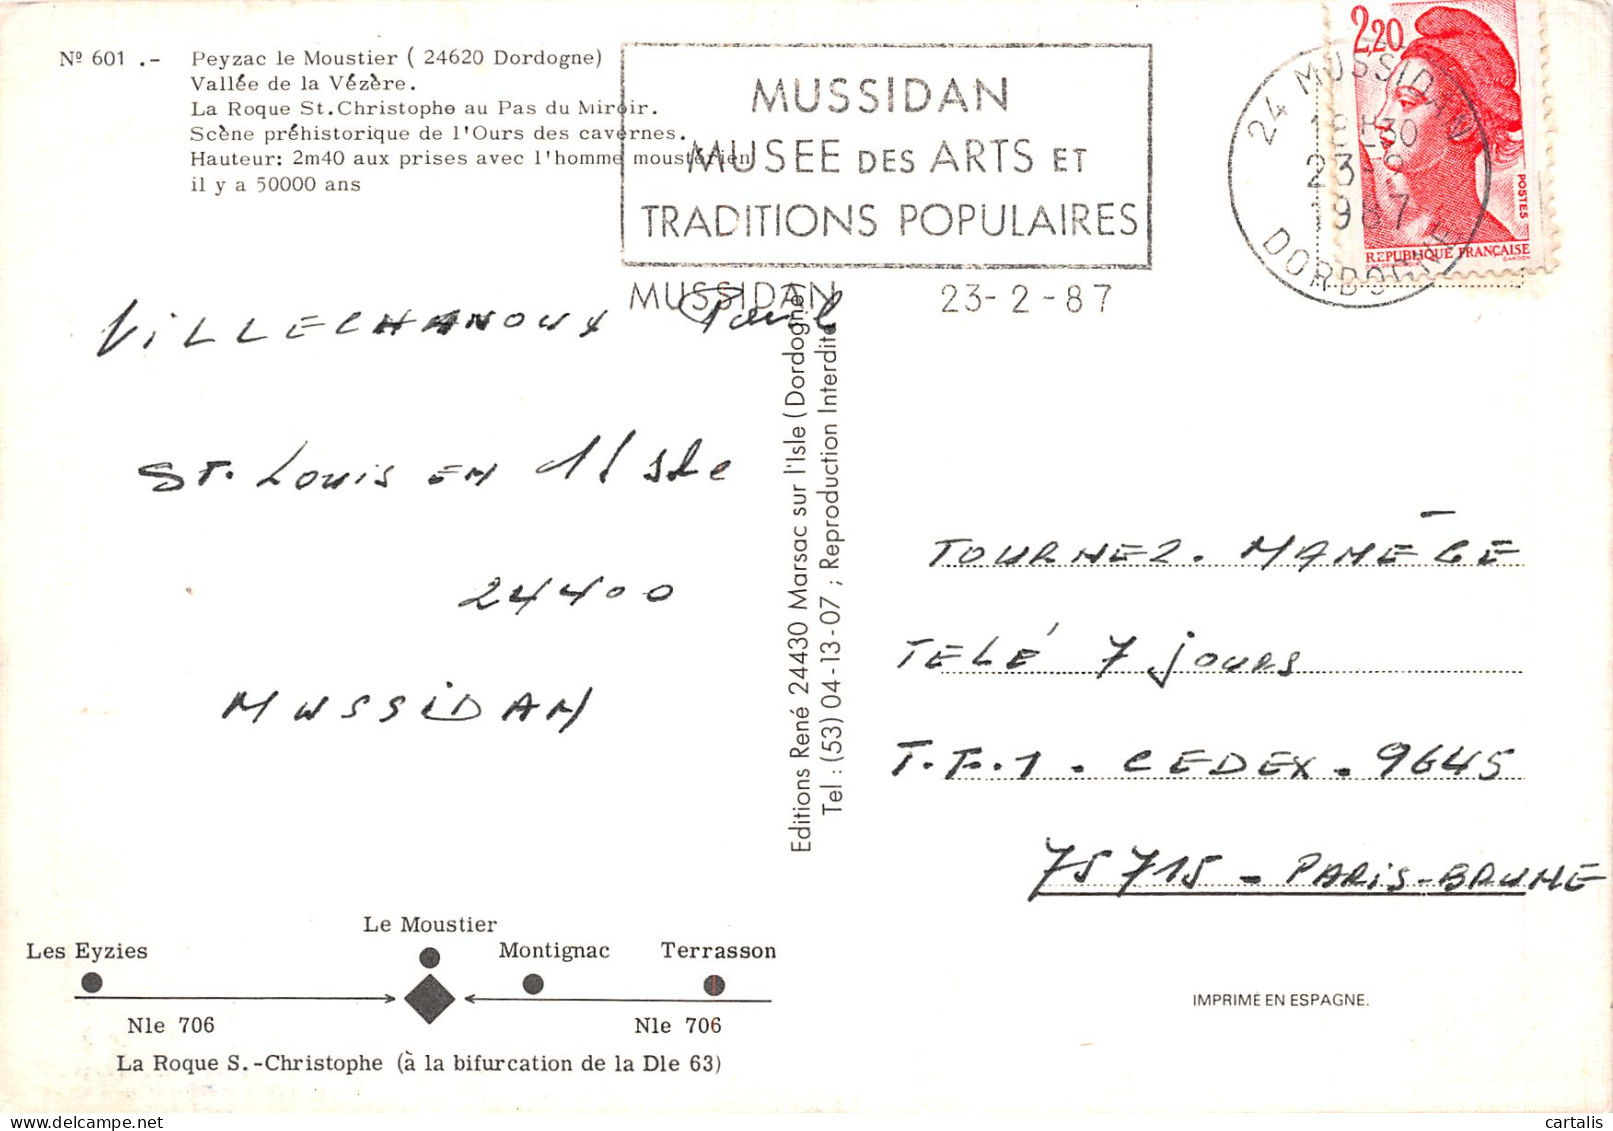 Nº 601 .- Peyzac le Moustier ( 24620 Dordogne)
Vallée de la Vézère.
La Roque St.Christophe au Pas du Miroir.
Scène préhistorique de l'Ours des cavernes.
Hauteur: 2m40 aux prises avec l'homme moustérien
il y a 50000 ans
MUSSIDAN
MUSEE DES ARTS ET
TRADITIONS POPULAIRES
MUSSIDAN 23-2-87
24 MUSSIDAN
DORDOGNE
2,20
POSTES
REPUBLIQUE FRANÇAISE
VILLECHANOUX Paul
ST. LOUIS EN l'Isle
24400
MUSSIDAN
Editions René 24430 Marsac sur l'Isle (Dordogne)
Tel : (53) 04-13-07 ; Reproduction Interdite
TOURNEZ. MANÈGE
TELÉ 7 jours
T.F.1 - CEDEX - 9645
75715 - PARIS-BRUNE
Le Moustier
Les Eyzies Montignac Terrasson
Nle 706 Nle 706
La Roque S.-Christophe (à la bifurcation de la Dle 63)
IMPRIMÉ EN ESPAGNE.
cartalis